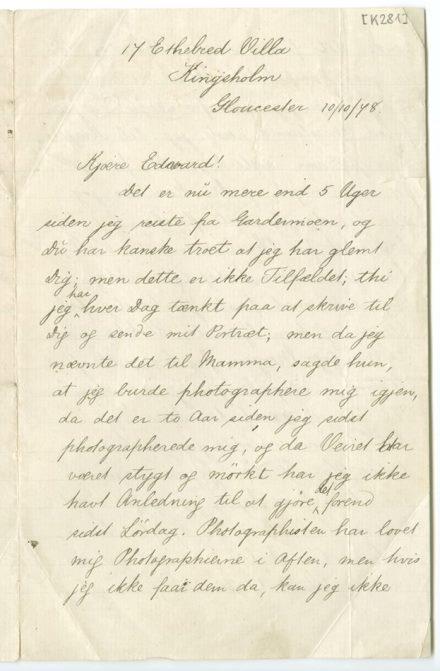 [K281]
17 Ethebred Villa
Kingsholm
Gloucester 10/10/78
Kjære Edvard!
Det er nu mere end 5 Uger
siden jeg reiste fra Gardermoen, og
Du har kanske troet at jeg har glemt
Dig; men dette er ikke Tilfældet; thi
jeg har hver Dag tænkt paa at skrive til
Dig og sende mit Portræt; men da jeg
nævnte det til Mamma, sagde hun,
at jeg burde photographere mig igjen,
da det er to Aar siden jeg sidst
photographerede mig, og da Veiret har
været stygt og mörkt har jeg ikke
havt Anledning til at gjöre det forend
sidst Lördag. Photographisten har lovet
mig Photographierne i Aften, men hvis
jeg ikke faar dem da, kan jeg ikke